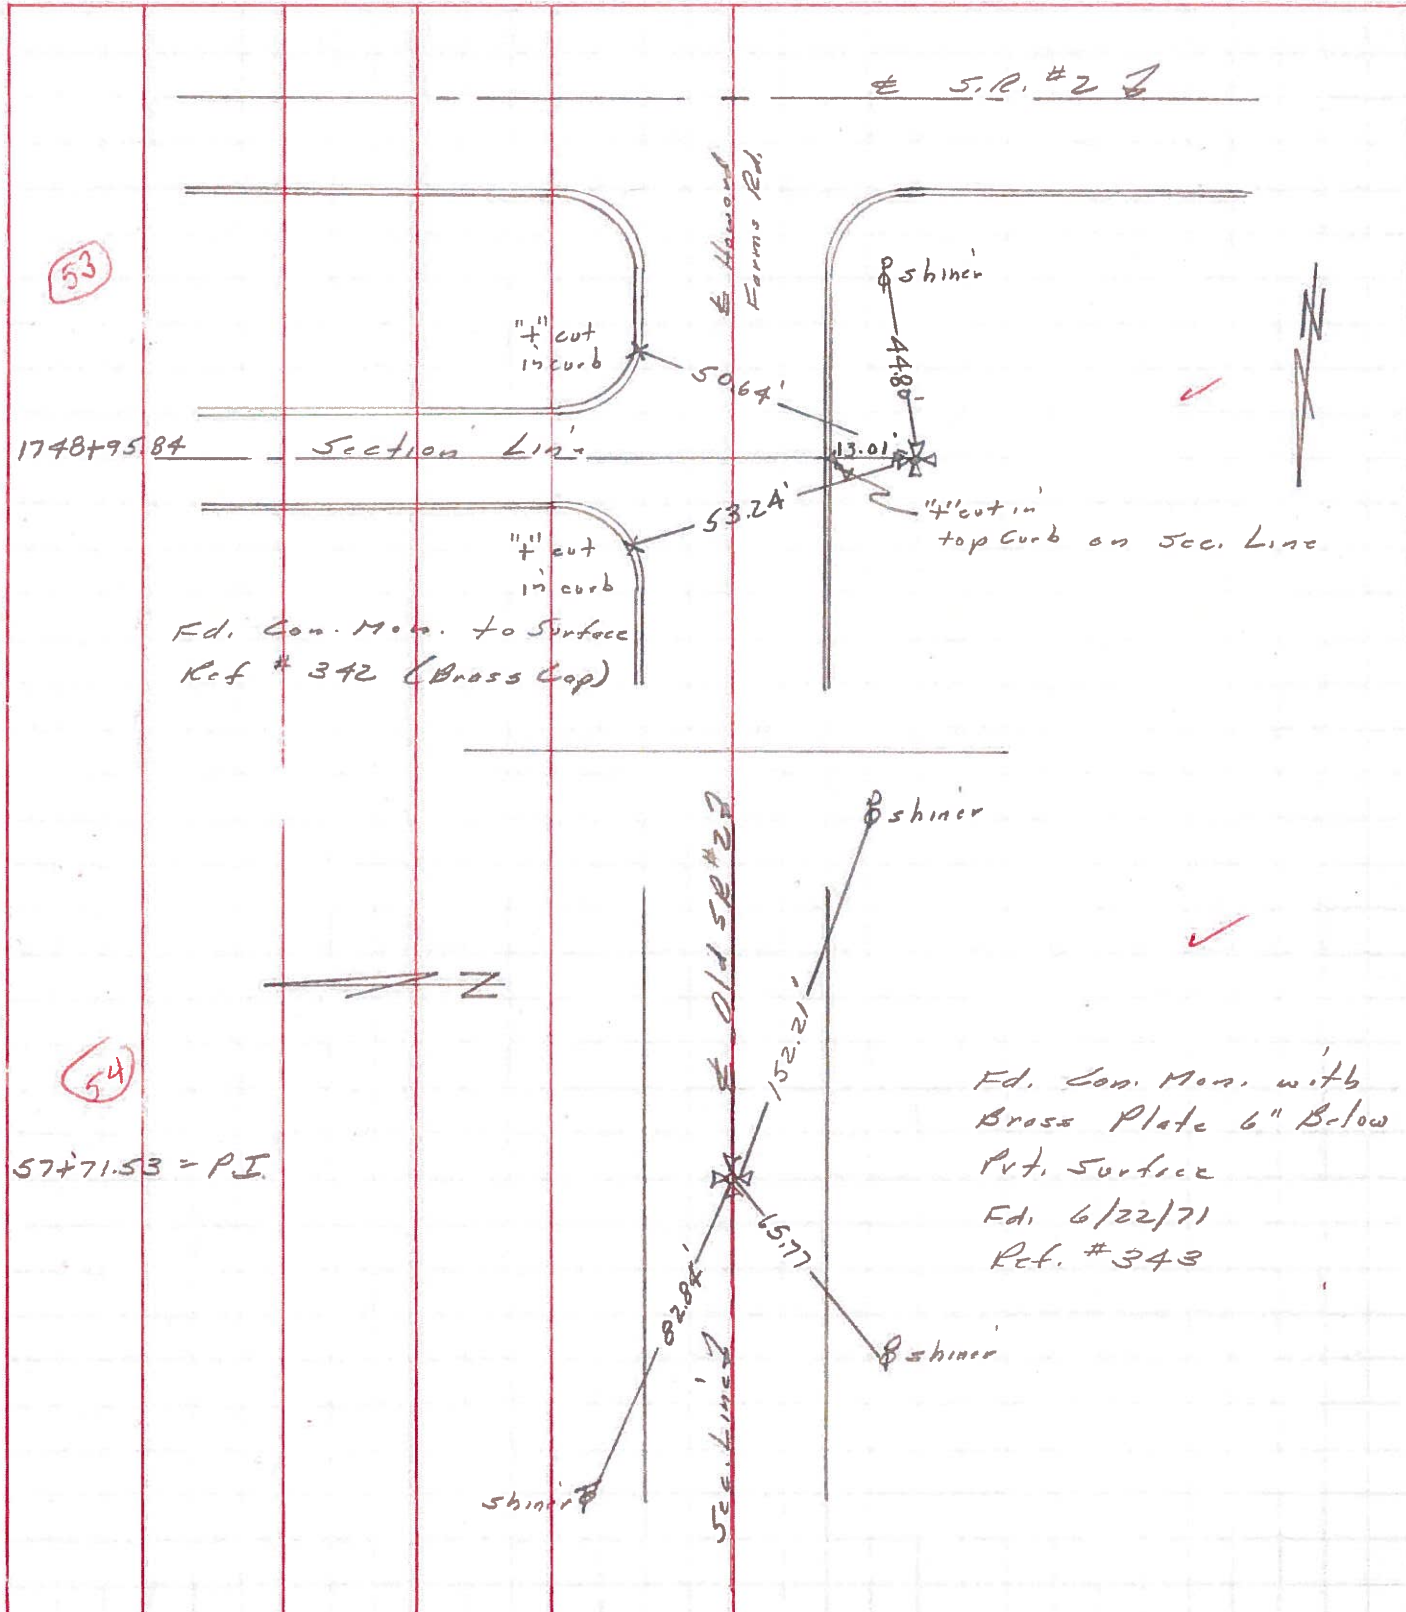 ℄ S.R. #2
℄ Howard
Farms Rd.
53
shiner
"+" cut
in curb
50.64'
44.80'
1748+95.84
Section Line
13.01'
53.24'
"+" cut in
top Curb on Sec. Line
"+" cut
in curb
Fd. Con. Mon. to Surface
Ref # 342 (Brass Cap)
N
shiner
℄ Old SR #2
152.21'
N
54
57+71.53 = P.I.
Fd. Con. Mon. with
Brass Plate 6" Below
Pvt. Surface
Fd. 6/22/71
Ref. #343
65.77
82.84'
shiner
Sec. Line
shiner